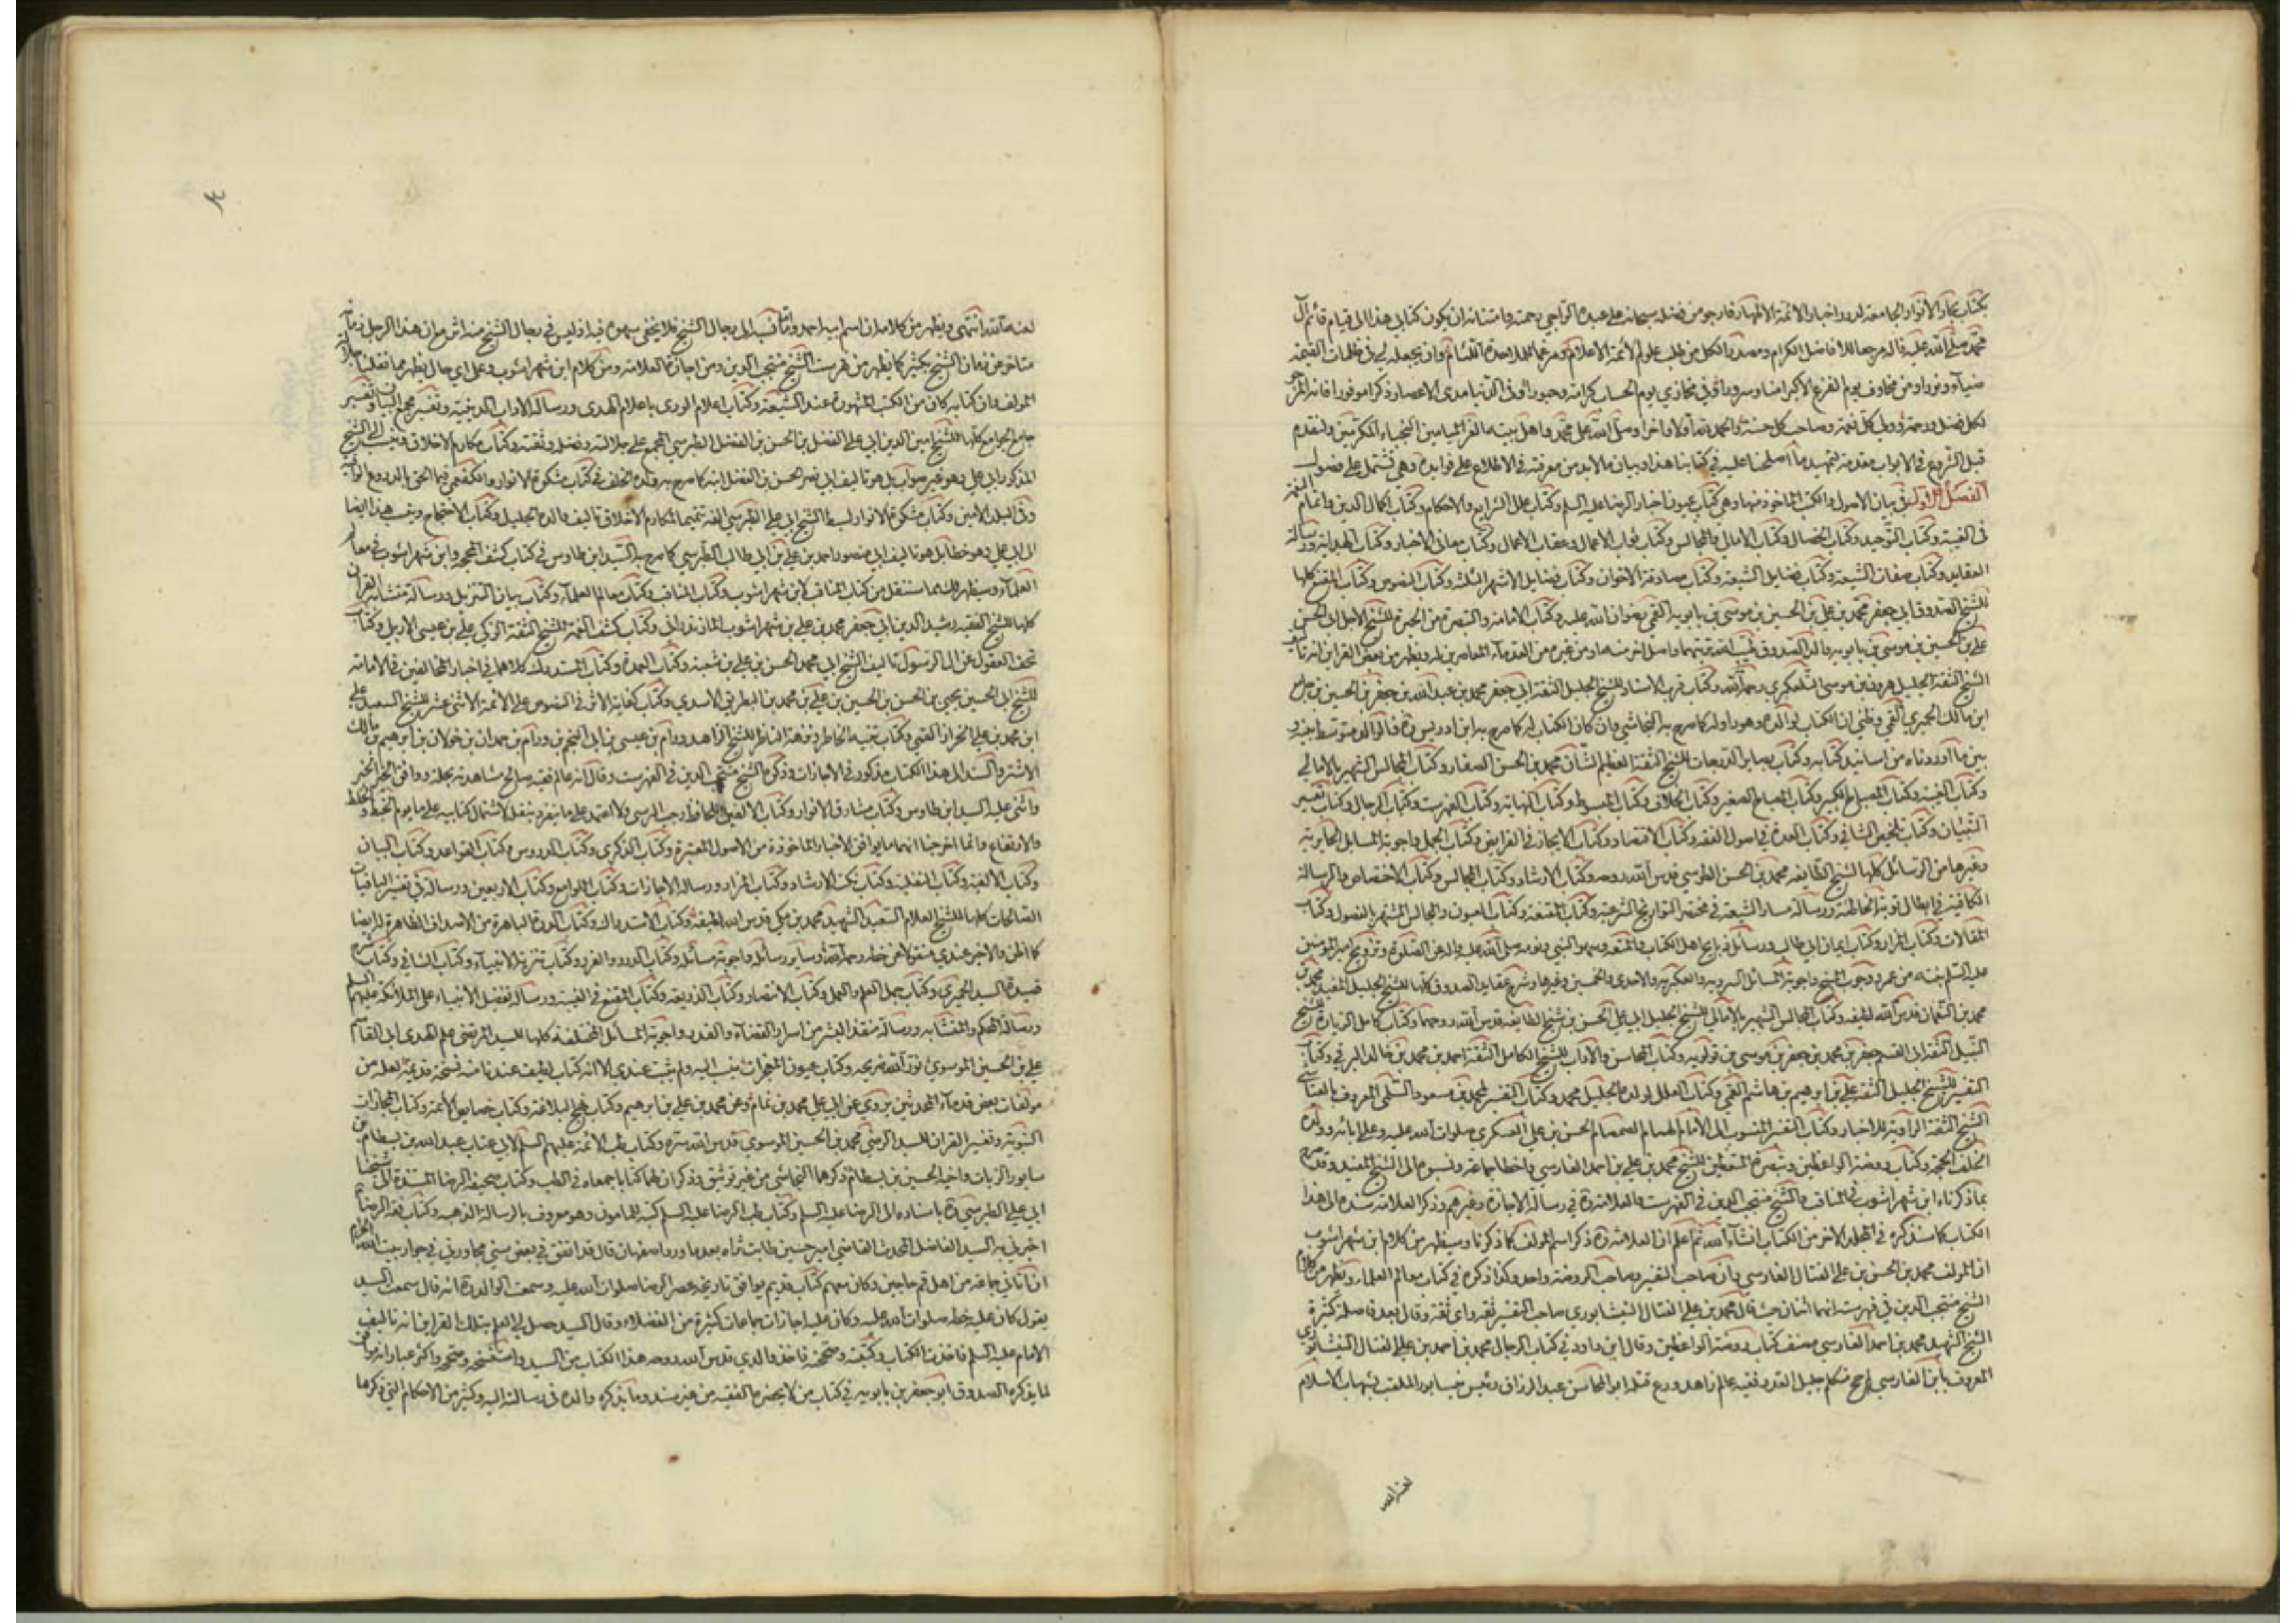 بكتاب بحار الأنوار الجامعة لدرر اخبار الأئمة الاطهار فارجو من فضله سبحانه على عبده الراجي رحمته وامتنانه ان يكون كتابي هذا الى قيام قائم آل
محمد صلى الله عليه قاله مرجعا للافاضل الكرام ومصدرا لكل من طلب علوم الأئمة الاعلام ومرغما للملاحدة اللئام وان يجعله لي في ظلمات القيمة
ضياء ونورا ومن مخاوف يوم الفزع الاكبر امنا وسرورا وفي مخازي يوم الحساب كرامة وحبورا وفي الدنيا مدى الاعصار ذكرا موفورا فانه المرجو
لكل فضل ورحمة وولي كل نعمة وصاحب كل حسنة والحمد لله اولا واخرا وصلى الله على محمد واهل بيته الغر الميامين النجباء المكرمين ولنقدم
قبل الشروع في الابواب مقدمة لتمهيد ما اصطلحنا عليه في كتابنا هذا وبيان ما لابد من معرفته في الاطلاع على فوايده وهي تشتمل على فصول
الفصل الاول في بيان الاصول والكتب المأخوذ منها وهي كتاب عيون اخبار الرضا عليه السلم وكتاب علل الشرايع والاحكام وكتاب اكمال الدين واتمام النعمة
في الغيبة وكتاب التوحيد وكتاب الخصال وكتاب الامالي والمجالس وكتاب ثواب الاعمال وعقاب الاعمال وكتاب معاني الاخبار وكتاب الهداية ورسالة
العقايد وكتاب صفات الشيعة وكتاب فضايل الشيعة وكتاب مصادقة الاخوان وكتاب فضايل الاشهر الثلثة وكتاب النصوص وكتاب المقنع كلها
للشيخ الصدوق ابي جعفر محمد بن علي بن الحسين بن موسى بن بابويه القمي رضوان الله عليه وكتاب الامامة والتبصرة من الحيرة للشيخ الاجل ابي الحسن
علي بن الحسين بن موسى بن بابويه والد الصدوق طيب الله تربتهما واصل اخر منه او من غيره من القدماء المعاصرين له ويظهر من بعض القراين انه تأليف
الشيخ الثقة الجليل هرون بن موسى التلعكبري رحمه الله وكتاب قرب الاسناد للشيخ الجليل الثقة ابي جعفر محمد بن عبد الله بن جعفر بن الحسين بن جامع
ابن مالك الحميري القمي وظني ان الكتاب لوالده وهو راو له كما صرح به النجاشي وان كان الكتاب له كما صرح به ابن ادريس ره فالوالد متوسط بينه و
بين ما اوردناه من اسانيد كتابه وكتاب بصاير الدرجات للشيخ الثقة العظيم الشأن محمد بن الحسن الصفار وكتاب المجالس الشهير بالامالي
وكتاب الغيبة وكتاب المصباح الكبير وكتاب المصباح الصغير وكتاب الخلاف وكتاب المبسوط وكتاب النهاية وكتاب الفهرست وكتاب الرجال وكتاب تفسير
التبيان وكتاب تلخيص الشافي وكتاب العدة في اصول الفقه وكتاب الاقتصاد وكتاب الايجاز في الفرايض وكتاب الجمل واجوبة المسايل الحايرية
وغيرها من الرسائل كلها لشيخ الطايفة محمد بن الحسن الطوسي قدس الله روحه وكتاب الارشاد وكتاب المجالس وكتاب الاختصاص والرسالة
الكافية في ابطال توبة الخاطئة ورسالة مسار الشيعة في مختصر التواريخ الشرعية وكتاب المقنعة وكتاب العيون والمجالس المشتهر بالفصول وكتاب
المقالات وكتاب المزار وكتاب ايمان ابي طالب ورسائل ذبايح اهل الكتاب والمتعة وسهو النبي ونومه صلى الله عليه واله عن الصلوة وتزويج امير المؤمنين
عليه السلم بنته من عمر ووجوب المسح واجوبة المسائل السروية والعكبرية والاحدى والخمسين وغيرها وشرح عقايد الصدوق كلها للشيخ الجليل المفيد محمد بن
محمد بن النعمان قدس الله لطيفه وكتاب المجالس الشهير بالامالي للشيخ الجليل ابي علي الحسن بن شيخ الطايفة قدس الله روحهما وكتاب كامل الزيارة للشيخ
النبيل الثقة ابي القسم جعفر بن محمد بن جعفر بن موسى بن قولويه وكتاب المحاسن والاداب للشيخ الكامل الثقة احمد بن محمد بن خالد البرقي وكتاب
التفسير للشيخ الجليل الثقة علي بن ابرهيم بن هاشم القمي وكتاب العلل لولده الجليل محمد وكتاب التفسير لمحمد بن مسعود السلمي المعروف بالعياشي
الشيخ الثقة الراوية للاخبار وكتاب التفسير المنسوب الى الامام الهمام الصمصام الحسن بن علي العسكري صلوات الله عليه وعلى ابائه وولده
الخلف الحجة وكتاب روضة الواعظين وتبصرة المتعظين للشيخ محمد بن علي بن احمد الفارسي واخطا جماعة ونسبوه الى الشيخ المفيد وقد صرح
بما ذكرناه ابن شهر اشوب في المناقب والشيخ منتجب الدين في الفهرست والعلامة ره في رسالة الاجازة وغيرهم وذكر العلامة سنده الى هذا
الكتاب كما سنذكره في المجلد الاخر من الكتاب انشاء الله ثم اعلم ان العلامة ره ذكر اسم المؤلف كما ذكرنا وسيظهر من كلام ابن شهر اشوب
ان المؤلف محمد بن الحسن بن علي الفتال الفارسي وان صاحب التفسير وصاحب الروضة واحد وكذا ذكره في كتاب معالم العلماء ويظهر من كلام
الشيخ منتجب الدين في فهرسته انهما اثنان حيث قال محمد بن علي الفتال النيشابوري صاحب التفسير ثقة واي ثقة وقال بعد فاصلة كثيرة
الشيخ الشهيد محمد بن احمد الفارسي مصنف كتاب روضة الواعظين وقال ابن داود في كتاب الرجال محمد بن احمد بن علي الفتال النيشابوري
المعروف بابن الفارسي متكلم جليل القدر فقيه عالم زاهد ورع قتله ابو المحاسن عبد الرزاق رئيس نيسابور الملقب بشهاب الاسلام
لعنه الله
لعنه الله انتهى ويظهر من كلامه ان اسم ابيه احمد واما نسبه الى رجال الشيخ فلا يخفى سهوه فيه اذ ليس في رجال الشيخ منه اثر مع ان هذا الرجل زمانه
متاخر عن زمان الشيخ بكثير كما يظهر من فهرست الشيخ منتجب الدين ومن اجازة العلامة ومن كلام ابن شهر اشوب وعلى اي حال يظهر مما نقلنا جلالة
المؤلف وان كتابه كان من الكتب المشهورة عند الشيعة وكتاب اعلام الورى باعلام الهدى ورسالة الاداب الدينية وتفسير مجمع البيان وتفسير
جامع الجوامع كلها للشيخ امين الدين ابي علي الفضل بن الحسن بن الفضل الطبرسي المجمع على جلالته وفضله وثقته وكتاب مكارم الاخلاق وينسب الى الشيخ
المذكور ابي علي وهو غير صواب بل هو تاليف ابي نصر الحسن بن الفضل ابنه كما صرح به ولده الخلف في كتاب مشكوة الانوار والكفعمي فيما الحق بالدروع الواقية
وفي البلد الامين وكتاب مشكوة الانوار لسبط الشيخ ابي علي الطبرسي الفه تتميما لمكارم الاخلاق تاليف والده الجليل وكتاب الاحتجاج وينسب هذا ايضا
الى ابي علي وهو خطا بل هو تاليف ابي منصور احمد بن علي بن ابي طالب الطبرسي كما صرح به السيد ابن طاوس في كتاب كشف المحجة وابن شهر اشوب في معالم
العلماء وسيظهر لك مما سننقل من كتاب المناقب لابن شهر اشوب وكتاب المناقب وكتاب معالم العلماء وكتاب بيان التنزيل ورسالة متشابه القران
كلها للشيخ الفقيه رشيد الدين ابي جعفر محمد بن علي بن شهر اشوب المازندراني وكتاب كشف الغمة للشيخ الثقة الزكي علي بن عيسى الاربلي وكتاب
تحف العقول عن ال الرسول تاليف الشيخ ابي محمد الحسن بن علي بن شعبة وكتاب العمدة وكتاب المستدرك كلاهما في اخبار المخالفين في الامامة
للشيخ ابي الحسين يحيى بن الحسن بن الحسين بن علي بن محمد بن البطريق الاسدي وكتاب كفاية الاثر في النصوص على الائمة الاثني عشر للشيخ السعيد علي
ابن محمد بن علي الخزاز القمي وكتاب تنبيه الخاطر ونزهة الناظر للشيخ الزاهد ورام بن عيسى بن ابي النجم بن ورام بن حمدان بن خولان بن ابرهيم بن مالك
الاشتر والسند الى هذا الكتاب مذكور في الاجازات وذكره الشيخ منتجب الدين في الفهرست وقال انه عالم فقيه صالح شاهدته بحلة ووافق الخبر الخبر
واثنى عليه السيد ابن طاوس وكتاب مشارق الانوار وكتاب الالفين للحافظ رجب البرسي ولا اعتمد على ما يتفرد بنقله لاشتمال كتابيه على ما يوهم الخبط والخلط
والارتفاع وانما اخرجنا منهما ما يوافق الاخبار الماخوذة من الاصول المعتبرة وكتاب الذكرى وكتاب الدروس وكتاب القواعد وكتاب البيان
وكتاب الالفية وكتاب النفلية وكتاب نكت الارشاد وكتاب المزار ورسالة الاجازات وكتاب اللوامع وكتاب الاربعين ورسالة في تفسير الباقيات
الصالحات كلها للشيخ العلامة السعيد الشهيد محمد بن مكي قدس الله لطيفه وكتاب الاستدراك وكتاب الدرة الباهرة من الاصداف الطاهرة له ايضا
كما اظن والاخير عندي منقولا عن خطه رحمه الله وساير رسائله واجوبة مسائله وكتاب الدرر والغرر وكتاب تنزيه الانبياء وكتاب الشافي وكتاب شرح
قصيدة السيد الحميري وكتاب جمل العلم والعمل وكتاب الانتصار وكتاب الذريعة وكتاب المقنع في الغيبة ورسالة تفضيل الانبياء على الملائكة عليهم السلم
ورسالة المحكم والمتشابه ورسالة منقذ البشر من اسرار القضاء والقدر واجوبة المسائل المختلفة كلها للسيد المرتضى علم الهدى ابي القاسم
علي بن الحسين الموسوي نور الله ضريحه وكتاب عيون المعجزات ينسب اليه ولم يثبت عندي الا انه كتاب لطيف عندنا منه نسخة قديمة لعله من
مؤلفات بعض قدماء المحدثين يروي عن ابي علي محمد بن همام وعن محمد بن علي بن ابرهيم وكتاب نهج البلاغة وكتاب خصايص الائمة وكتاب المجازات
النبوية وتفسير القران للسيد الرضي محمد بن الحسين الموسوي قدس الله سره وكتاب طب الائمة عليهم السلم لابي عتاب عبد الله بن بسطام بن
سابور الزيات واخيه الحسين بن بسطام ذكرهما النجاشي من غير توثيق وذكر ان لهما كتابا جمعاه في الطب وكتاب صحيفة الرضا المسندة الى شيخنا
ابي علي الطبرسي ره باسناده الى الرضا عليه السلم وكتاب طب الرضا عليه السلم كتبه للمامون وهو معروف بالرسالة الذهبية وكتاب فقه الرضا
اخبرني به السيد الفاضل المحدث القاضي امير حسين طاب ثراه بعد ما ورد اصفهان قال قد اتفق في بعض سني مجاورتي في جوار بيت الله الحرام
ان اتاني جماعة من اهل قم حاجين وكان معهم كتاب قديم يوافق تاريخه عصر الرضا صلوات الله عليه وسمعت الوالد ره انه قال سمعت السيد
يقول كان عليه خطه صلوات الله عليه وكان عليه اجازات جماعات كثيرة من الفضلاء وقال السيد حصل لي العلم بتلك القراين انه تاليف
الامام عليه السلم فاخذت الكتاب وكتبته وصححته فاخذ والدي قدس الله روحه هذا الكتاب من السيد واستنسخه وصححه واكثر عباراته موافق
لما يذكره الصدوق ابو جعفر بن بابويه في كتاب من لا يحضره الفقيه من غير سند وما يذكره والده في رسالته اليه وكثير من الاحكام التي ذكرها